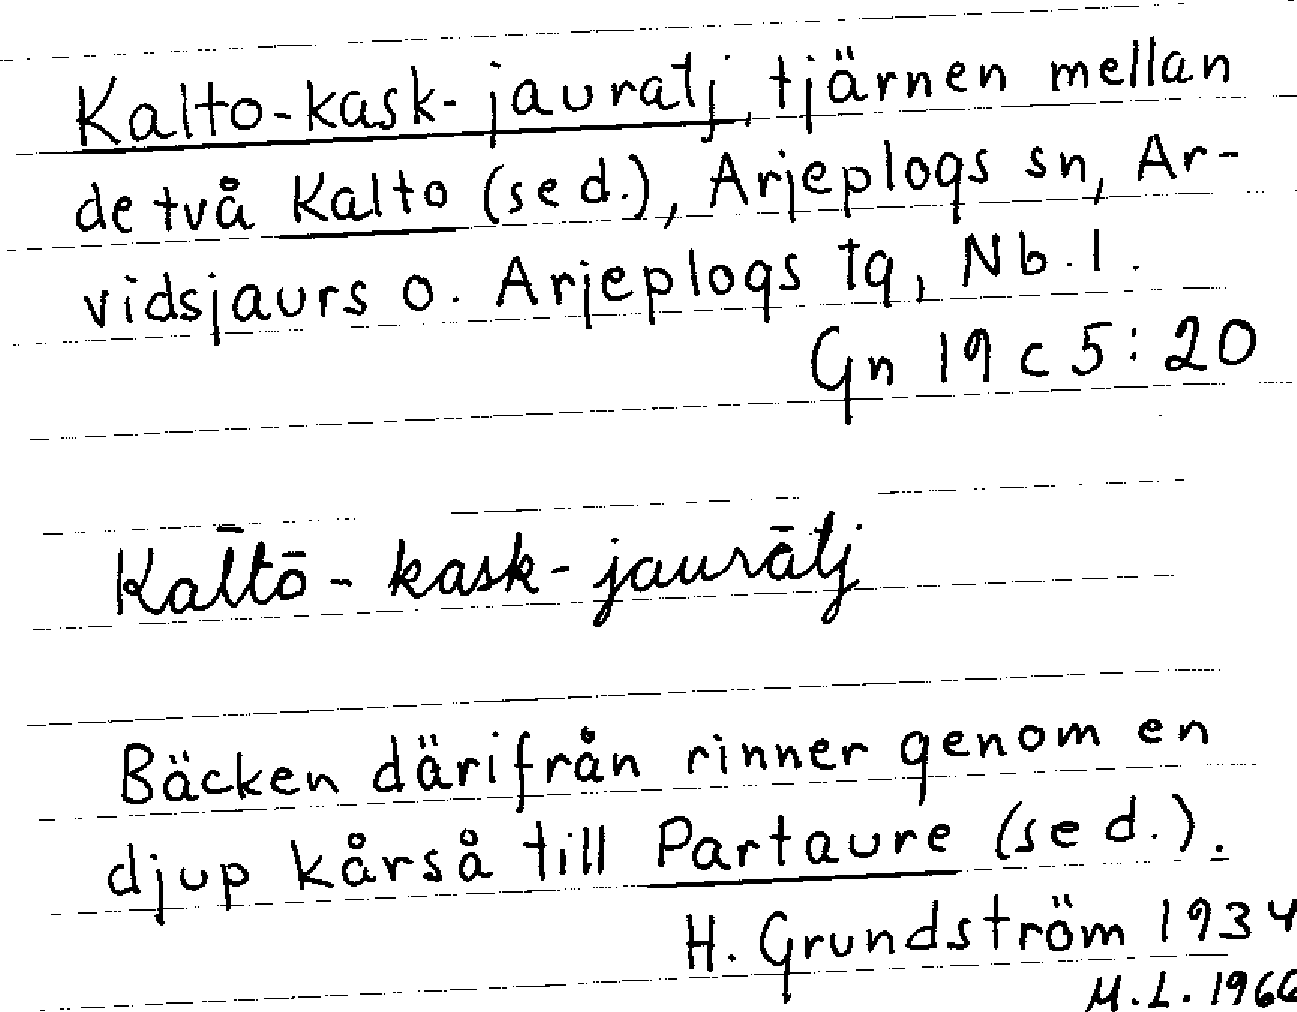 Kalto-kask-jauratj, tjärnen mellan
de två Kalto (se d.), Arjeplogs sn, Ar-
vidsjaurs o. Arjeplogs tg, Nb. l.
Gn 19 c 5:20
Kal̄tō - kask - jaurātj
Bäcken därifrån rinner genom en
djup kårså till Partaure (se d.).
H. Grundström 1934
M.L. 1966